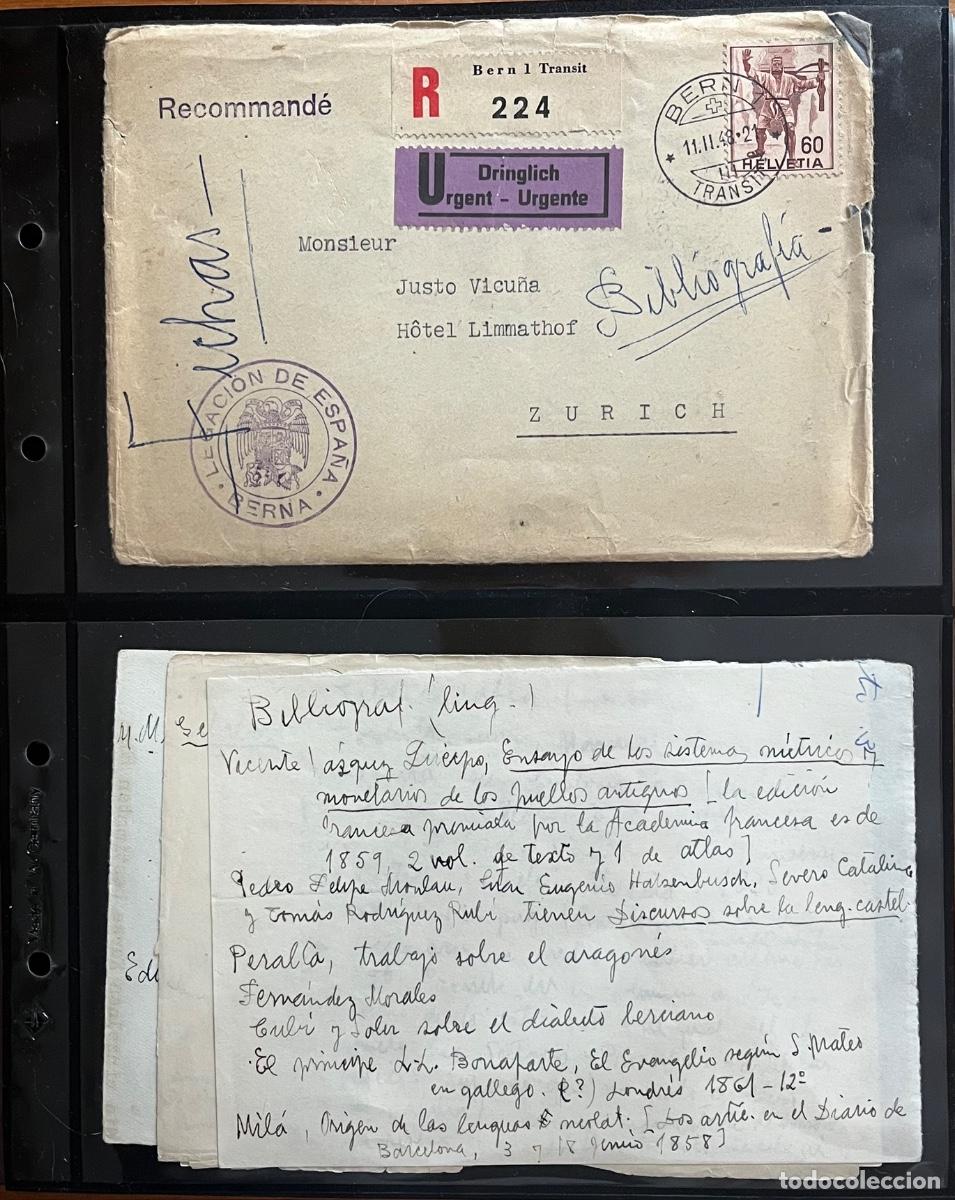 Recommandé
R
Bern 1 Transit
224
U Dringlich
Urgent - Urgente
BERN 1
11.II.48-21
TRANSIT
60
HELVETIA
Monsieur
Justo Vicuña
Hôtel Limmathof
ZURICH
Bibliografía
Fichas
LEGACIÓN DE ESPAÑA
BERNA
Bibliograf. (ling.)
Vicente Vázquez Queipo, Ensayo de los sistemas métricos y
monetarios de los pueblos antiguos [la edición
francesa premiada por la Academia francesa es de
1859, 2 vol. de texto y 1 de atlas]
Pedro Felipe Monlau, Juan Eugenio Hatzenbusch, Severo Catalina
y Tomás Rodríguez Rubí tienen Discursos sobre la leng. castel.
Peralta, trabajo sobre el aragonés
Fernández Morales
Cubí y Soler sobre el dialecto berciano
El príncipe L. L. Bonaparte, El Evangelio según S. Mateo
en gallego. (?) Londres 1861 - 12º
Milá, Origen de las lenguas neolat. [Dos artíc. en el Diario de
Barcelona, 3 y 18 Junio 1858]
todocoleccion